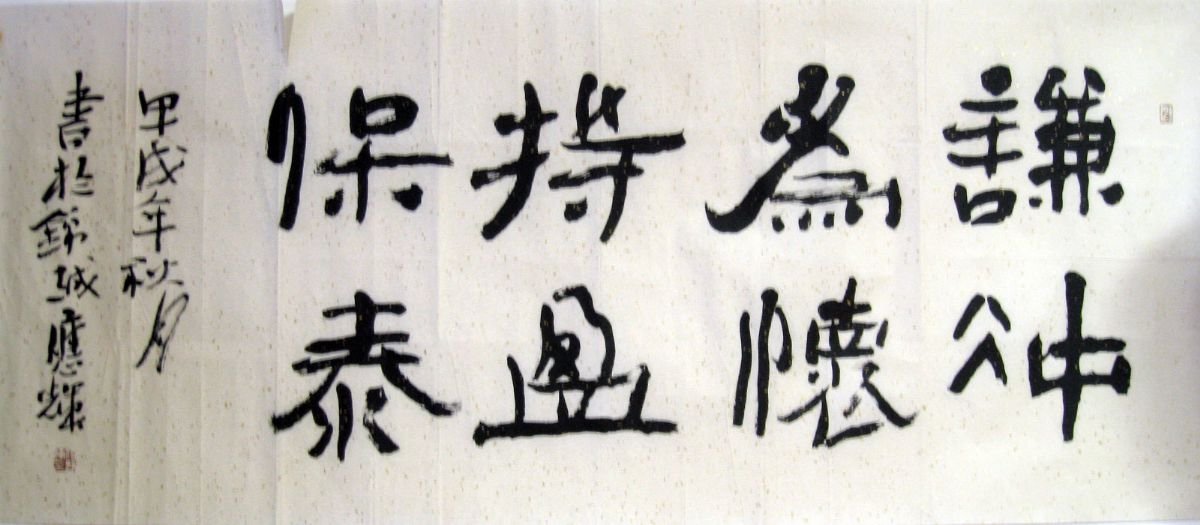 謙冲
爲懷
持盈
保泰
甲戌年秋月
書於錦城應輝